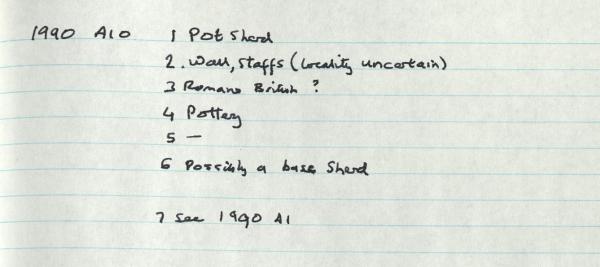 1990 A10 1 Pot Sherd
2. Wall, Staffs (locality uncertain)
3 Romano British ?
4 Pottery
5 —
6 Possibly a base Sherd
7 See 1990 A1